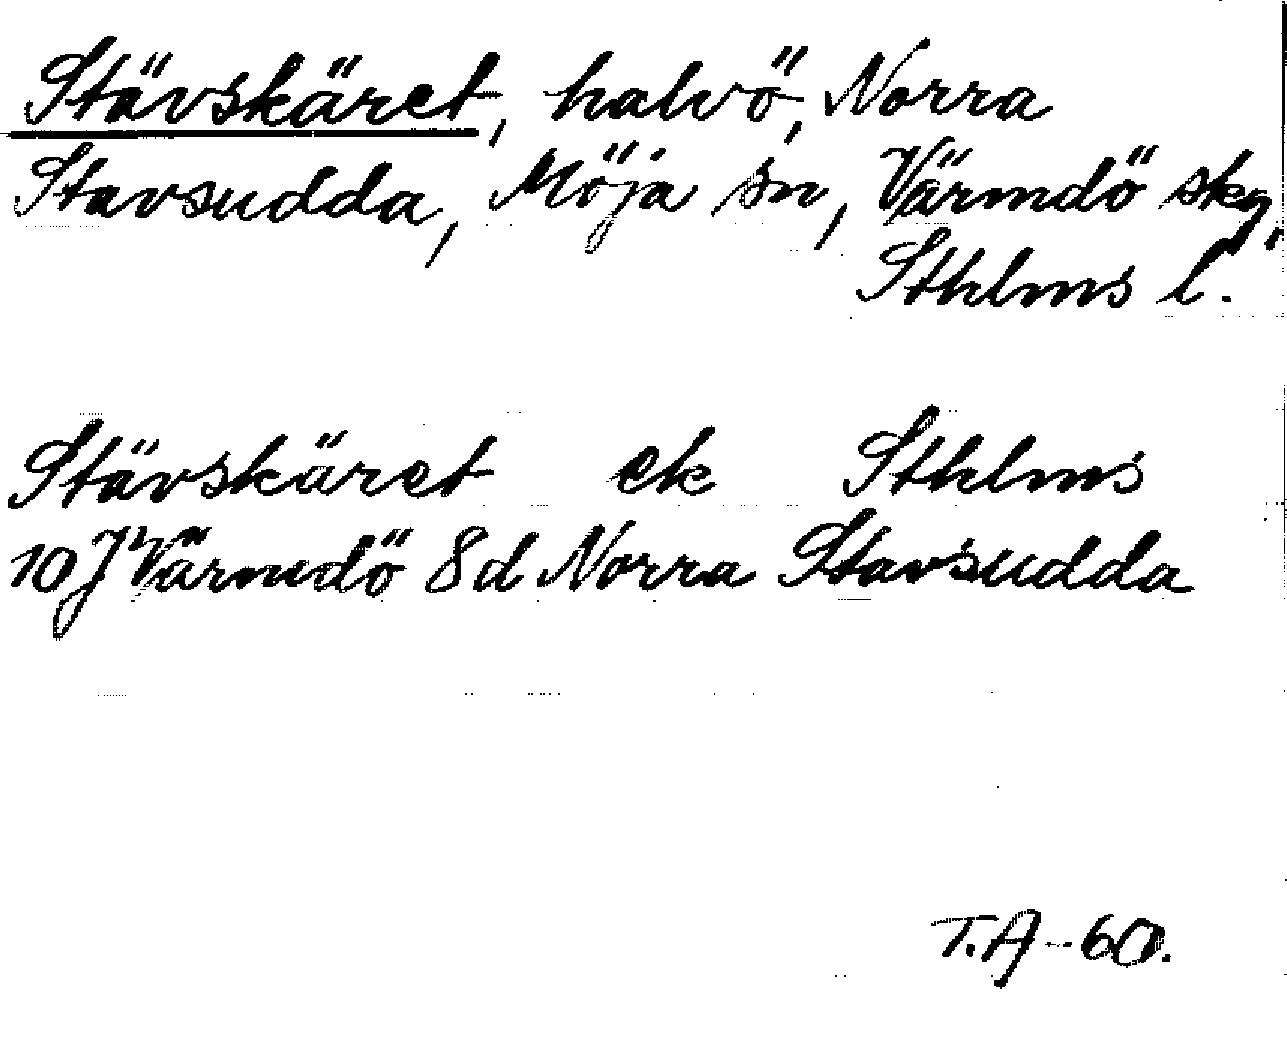 Stävskäret, halvö, Norra
Stavsudda, Möja sn, Värmdö skg,
Sthlms l.
Stävskäret ek Sthlms
10J Värmdö 8d Norra Stavsudda
T.A -60.